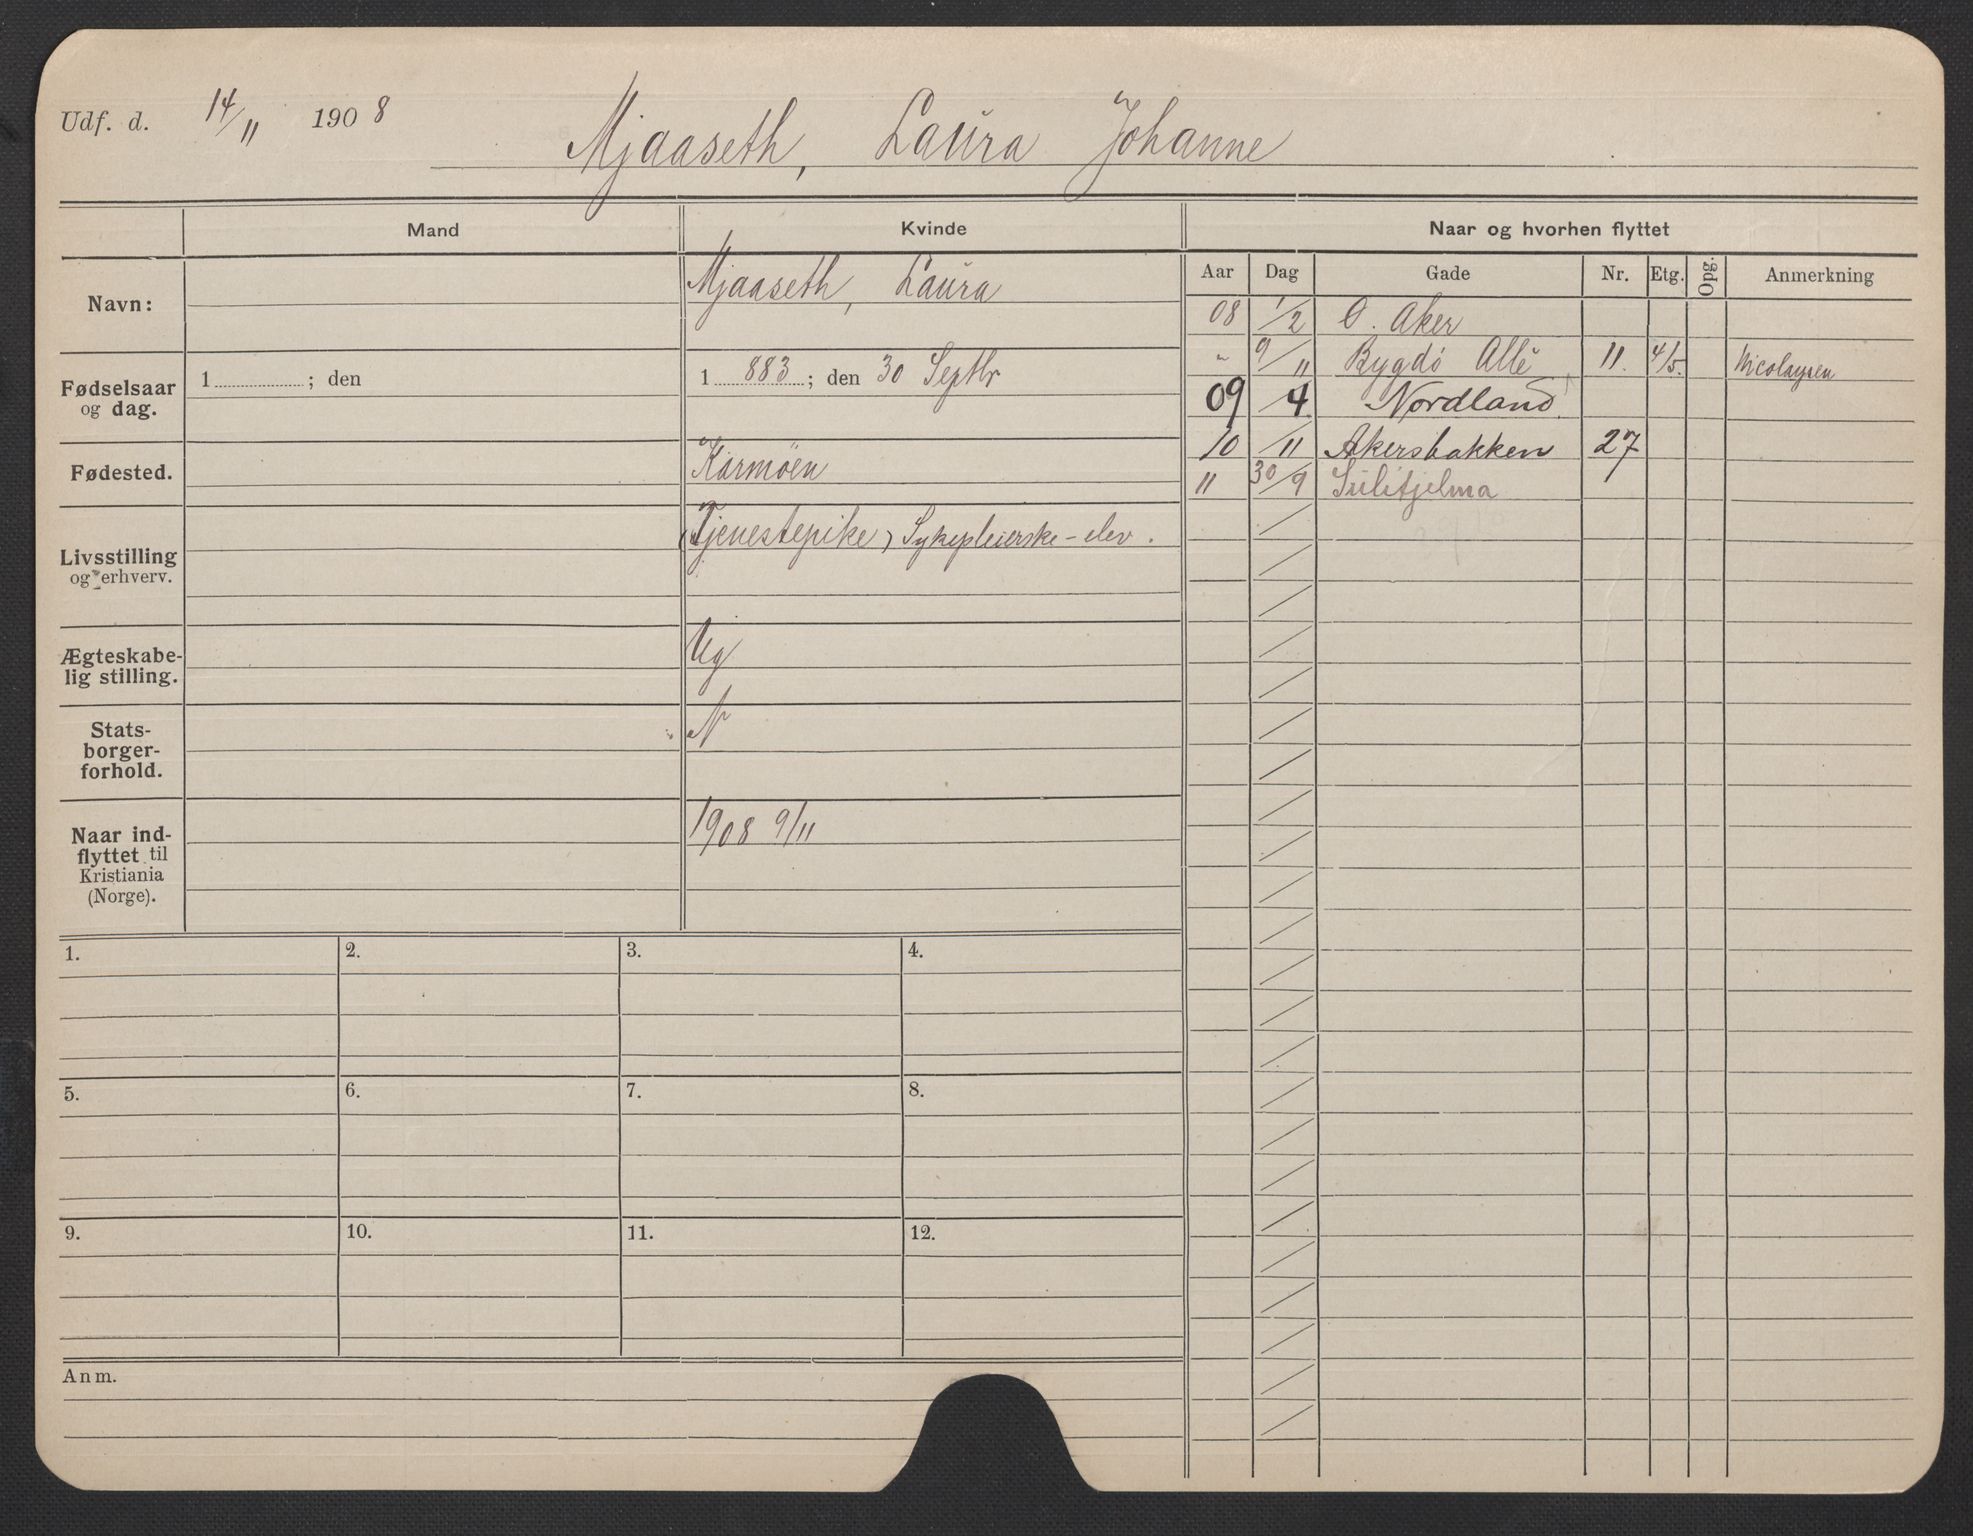 Udf. d. 14/11 1908 Mjaaseth, Laura Johanne
Mand Kvinde Naar og hvorhen flyttet
Aar Dag Gade Nr. Etg. Opg. Anmerkning
Navn: Mjaaseth, Laura
Fødselsaar og dag. 1 ; den 1883; den 30 Septbr
Fødested. Karmöen
Livsstilling og erhverv. (Tjenestepike) Sykepleierske-elev.
Ægteskabe-
lig stilling. Ug
Stats-
borger-
forhold. N
Naar ind-
flyttet til
Kristiania
(Norge). 1908 9/11
08 1/2 Ø. Aker
" 9/11 Bygdö Allé 11. 4/5. Nicolaysen
09 /4 Nordland.
10 /11 Akersbakken 27
11 30/9 Sulitjelma
1. 2. 3. 4.
5. 6. 7. 8.
9. 10. 11. 12.
Anm.